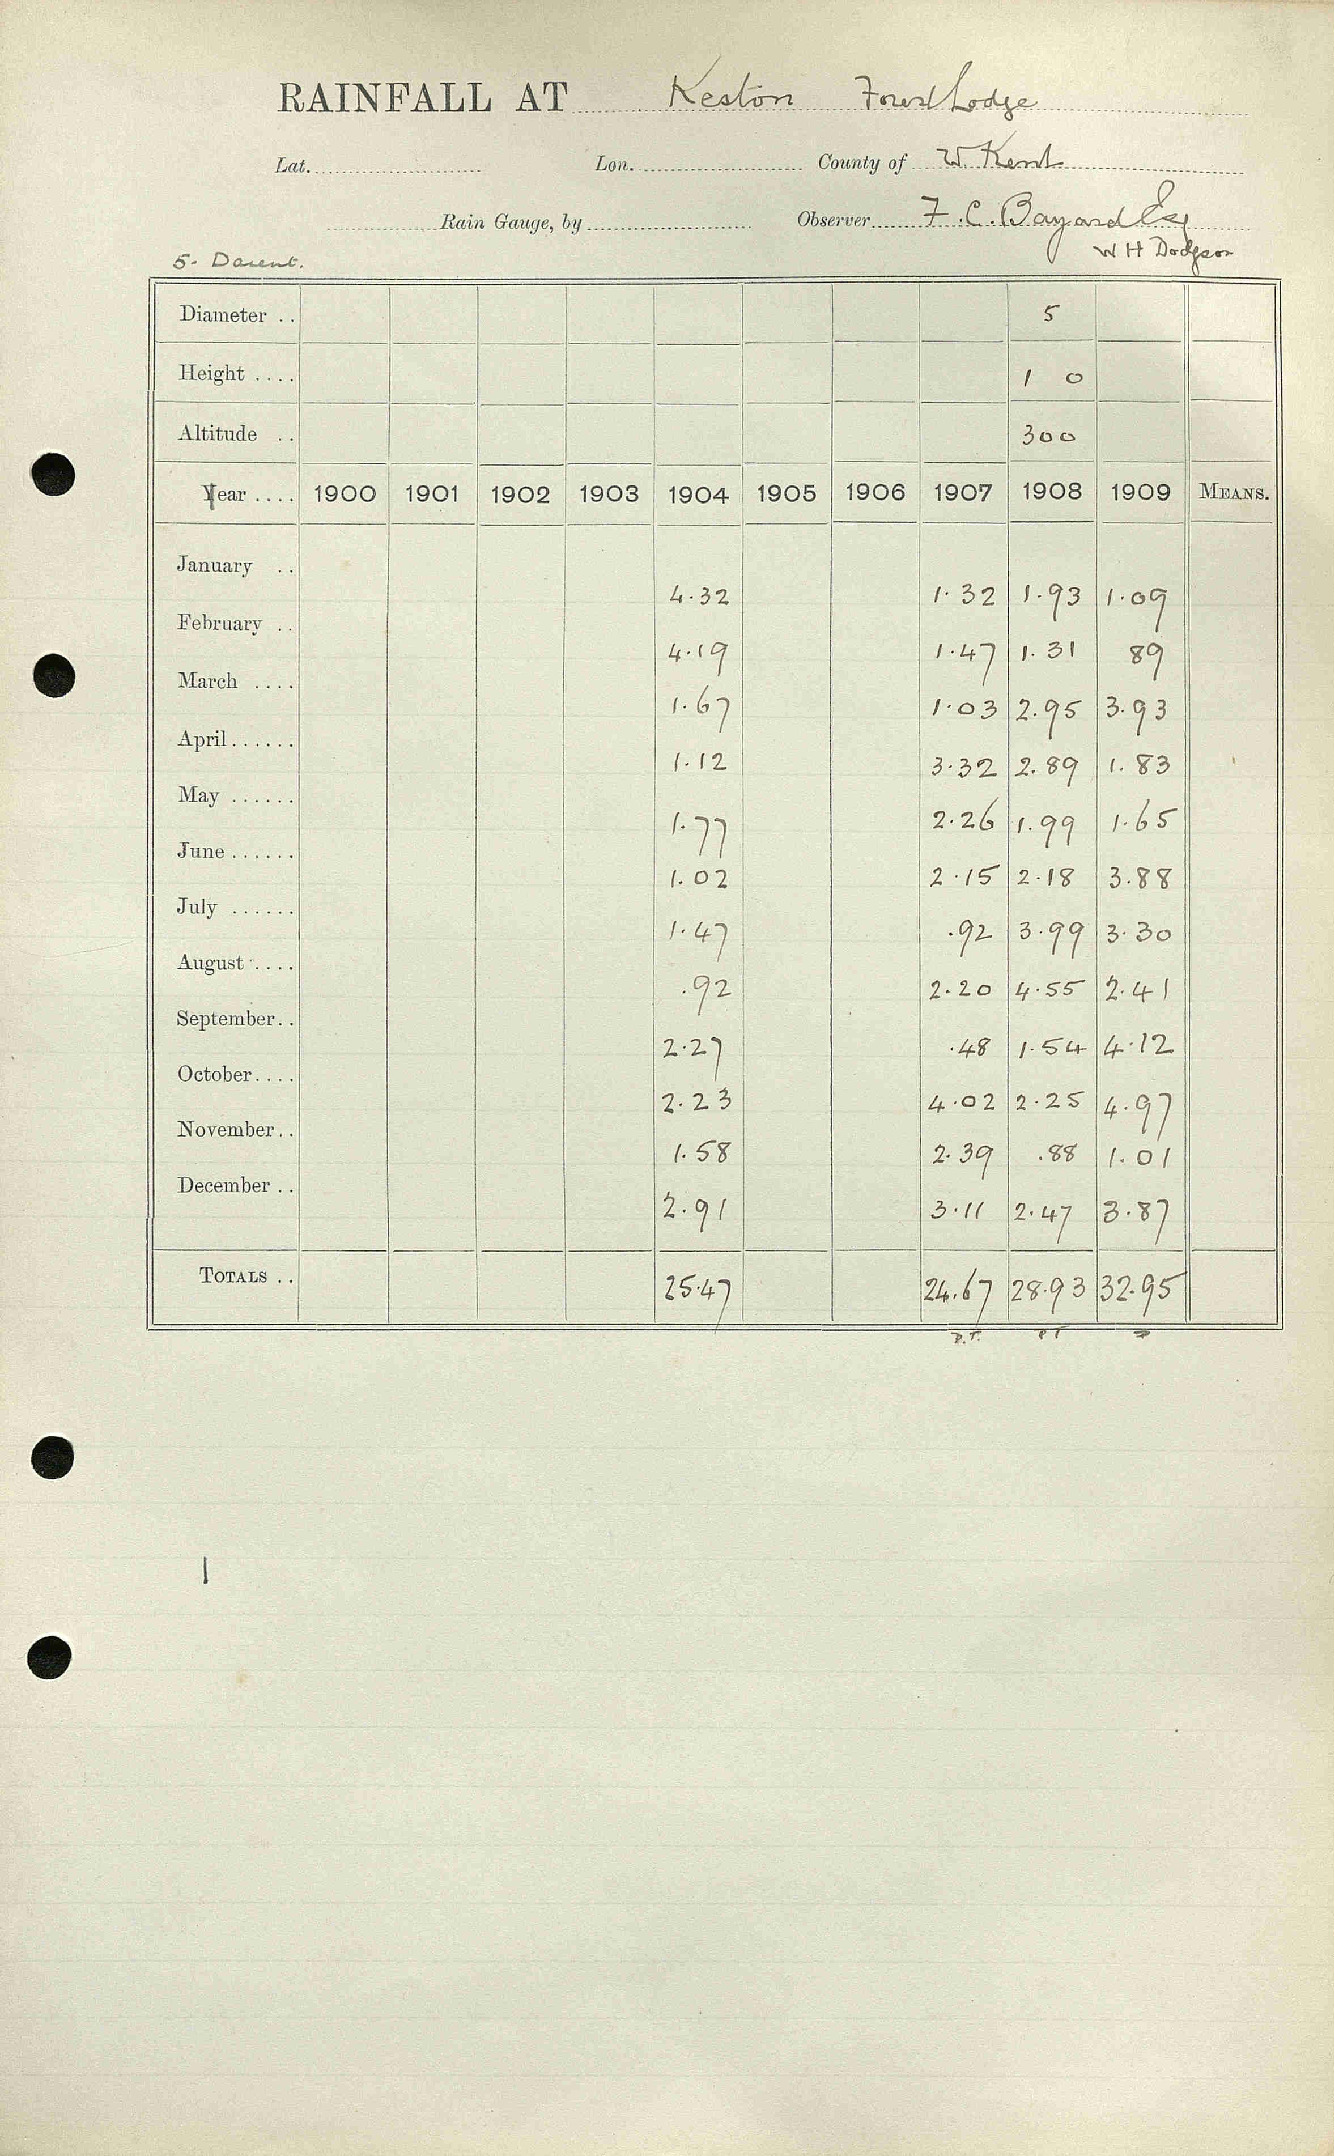 RAINFALL AT Keston Forest Lodge
Lat. Lon. County of W. Kent
Rain Gauge, by Observer F. C. Bayard Esq
5. Darent. W H Dodgson
Diameter .. 5
Height .... 1 0
Altitude .. 300
Year .... 1900 1901 1902 1903 1904 1905 1906 1907 1908 1909 MEANS.
January .. 4.32 1.32 1.93 1.09
February .. 4.19 1.47 1.31 89
March .... 1.67 1.03 2.95 3.93
April ...... 1.12 3.32 2.89 1.83
May ...... 1.77 2.26 1.99 1.65
June ...... 1.02 2.15 2.18 3.88
July ...... 1.47 .92 3.99 3.30
August .... .92 2.20 4.55 2.41
September.. 2.27 .48 1.54 4.12
October.... 2.23 4.02 2.25 4.97
November.. 1.58 2.39 .88 1.01
December .. 2.91 3.11 2.47 3.87
TOTALS .. 25.47 24.67 28.93 32.95